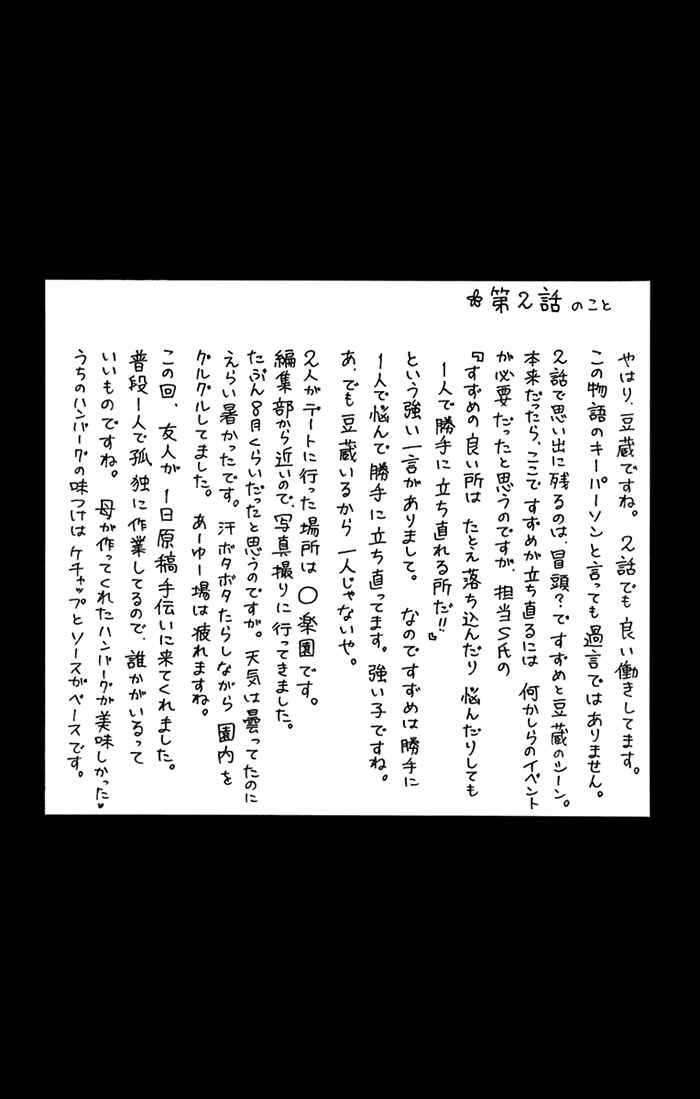 ✿第2話のこと
やはり、豆蔵ですね。 2話でも 良い働きしてます。
この物語のキーパーソンと言っても過言ではありません。
2話で思い出に残るのは、冒頭?ですずめと豆蔵のシーン。
本来だったら、ここですずめが立ち直るには 何かしらのイベント
が必要だったと思うのですが、担当S氏の
『すずめの良い所は たとえ落ち込んだり 悩んだりしても
1人で勝手に立ち直れる所だ!!』
という強い一言がありまして。 なのですずめは勝手に
1人で悩んで勝手に立ち直ってます。強い子ですね。
あ、でも豆蔵いるから 一人じゃないや。
2人がデートに行った場所は ○楽園です。
編集部から近いので、写真撮りに行ってきました。
たぶん8月くらいだったと思うのですが。天気は曇ってたのに
えらい暑かったです。汗ボタボタたらしながら 園内を
グルグルしてました。 あーゆー場は疲れますね。
この回、友人が 1日原稿手伝いに来てくれました。
普段1人で孤独に作業してるので、誰かがいるって
いいものですね。 母が作ってくれたハンバーグが美味しかった♥
うちのハンバーグの味つけは ケチャップとソースがベースです。